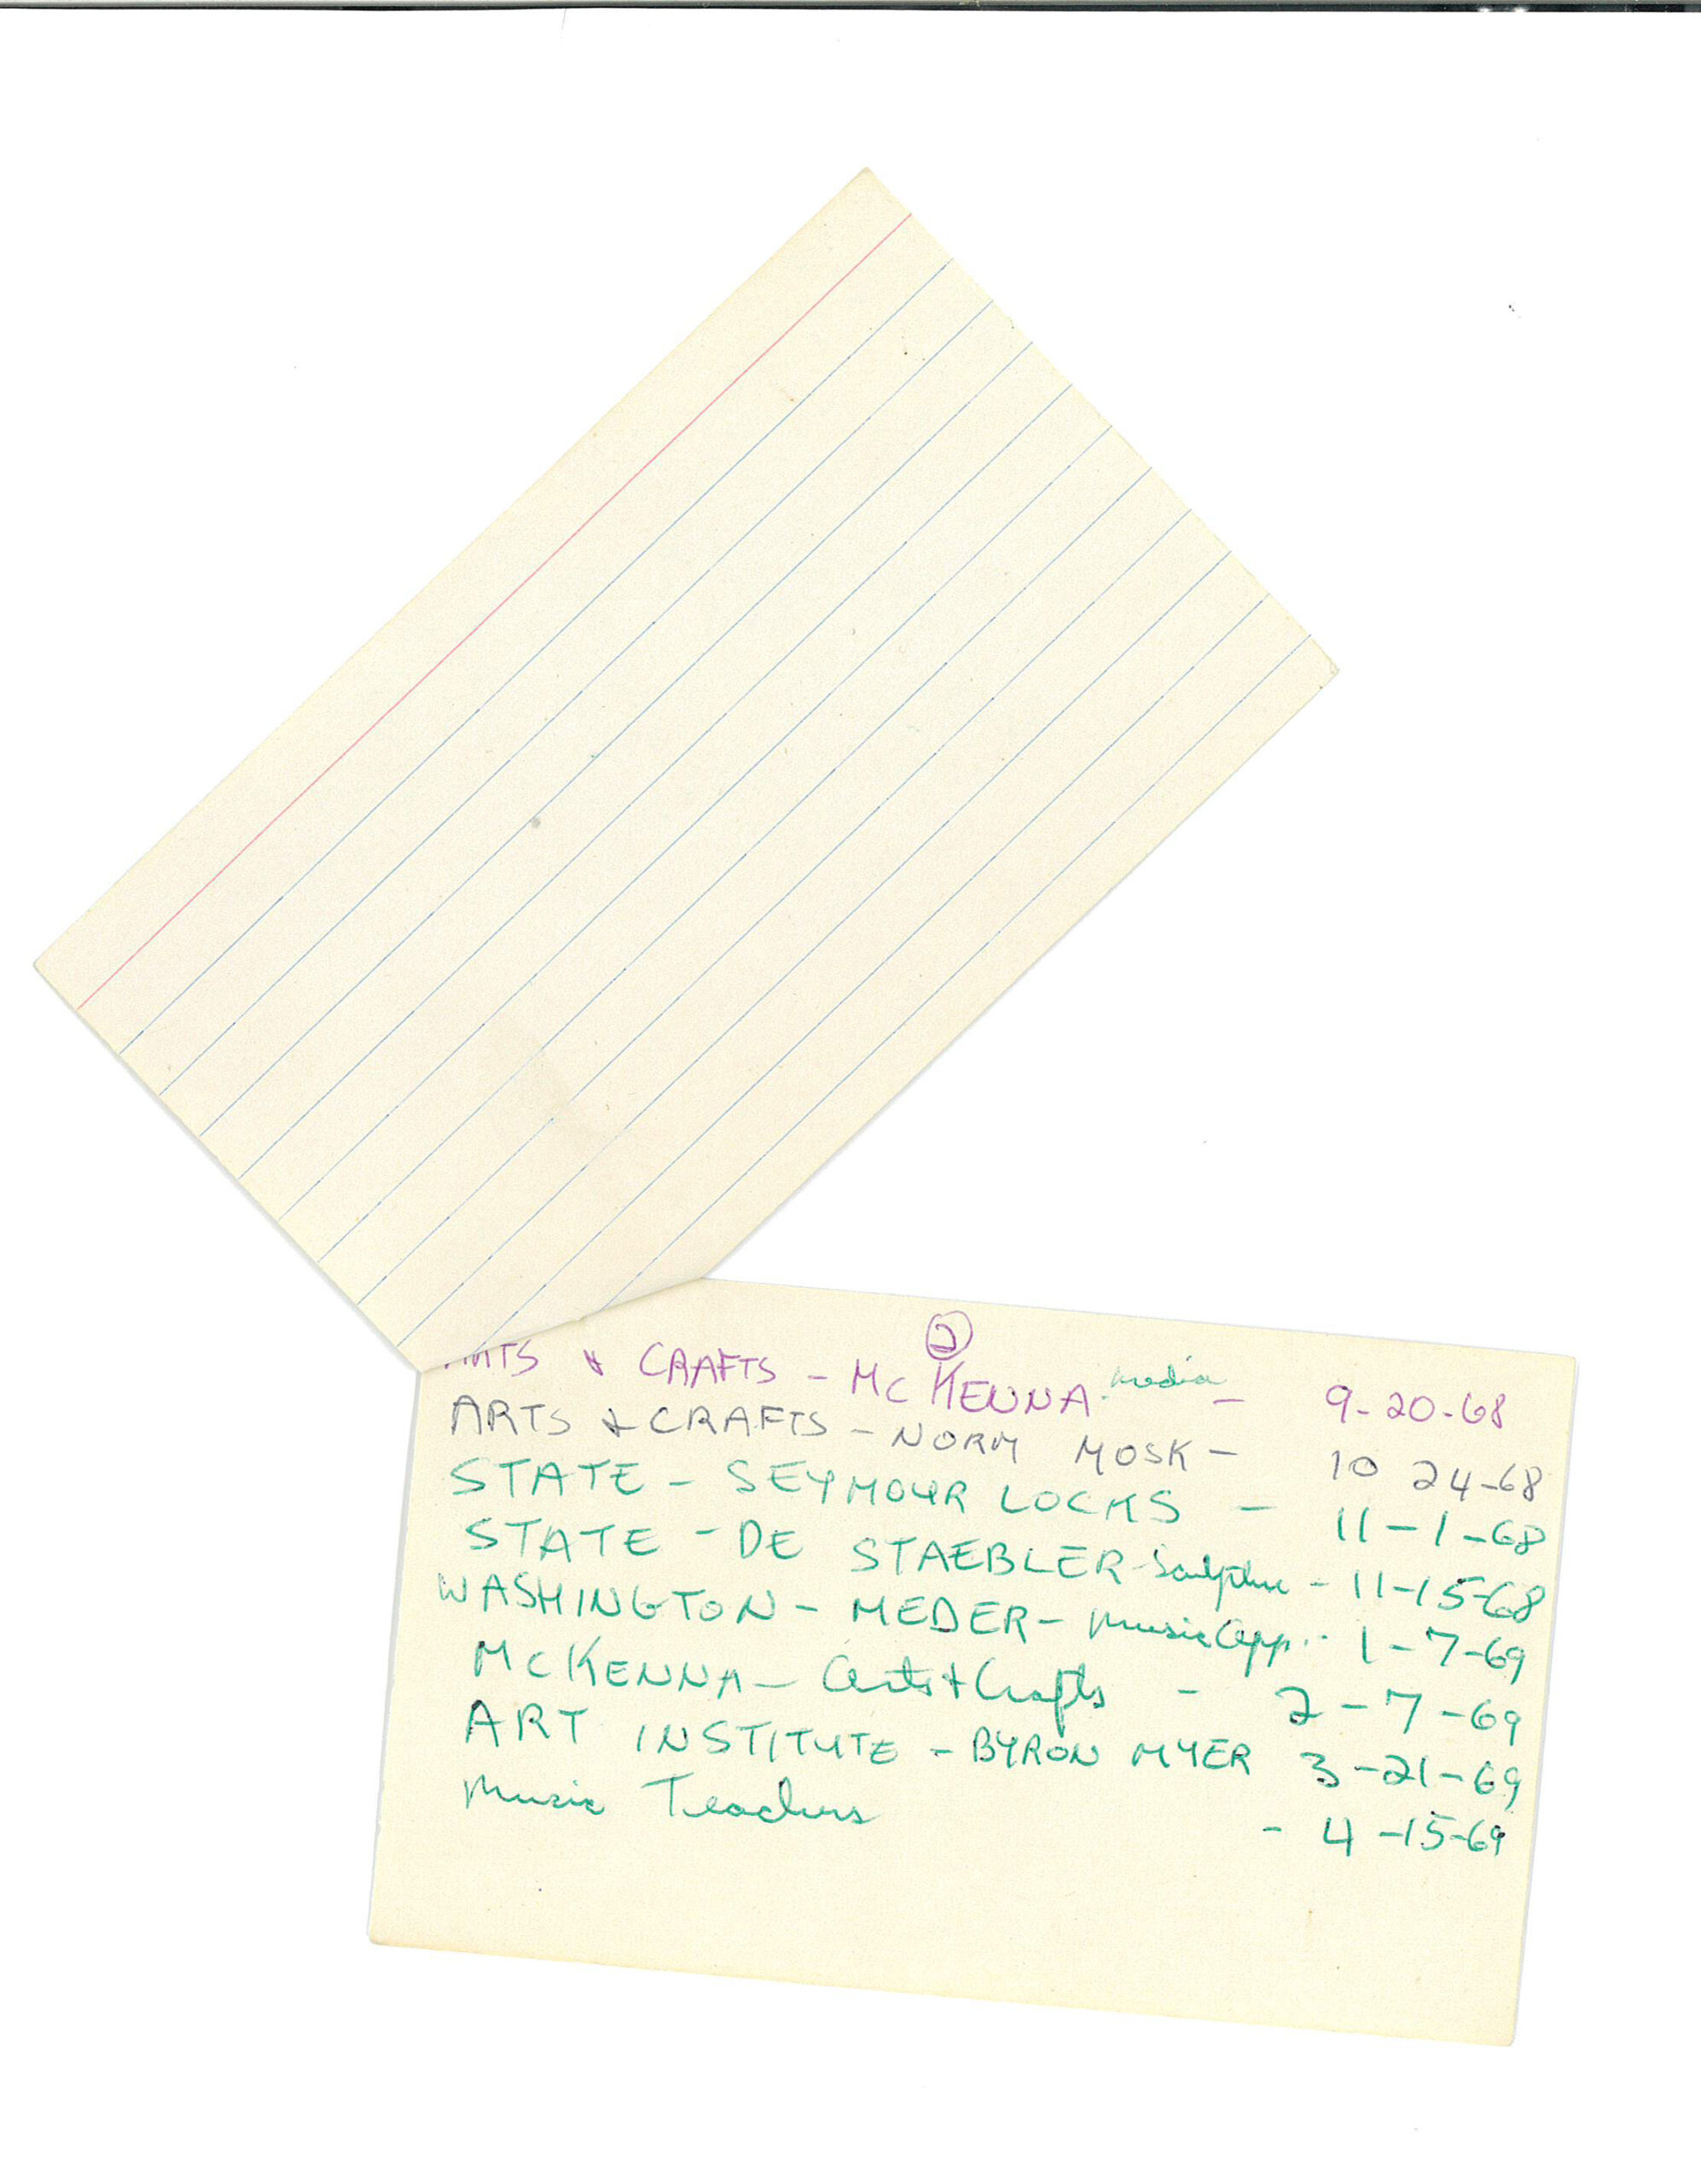 ②
ARTS & CRAFTS - MCKENNA - media - 9-20-68
ARTS & CRAFTS - NORM MOSK - 10 24-68
STATE - SEYMOUR LOCKS - 11-1-68
STATE - DE STAEBLER - Sculpture - 11-15-68
WASHINGTON - MEDER - Music App. - 1-7-69
MCKENNA - Arts + Crafts - 2-7-69
ART INSTITUTE - BYRON MYER 3-21-69
Music Teachers - 4-15-69